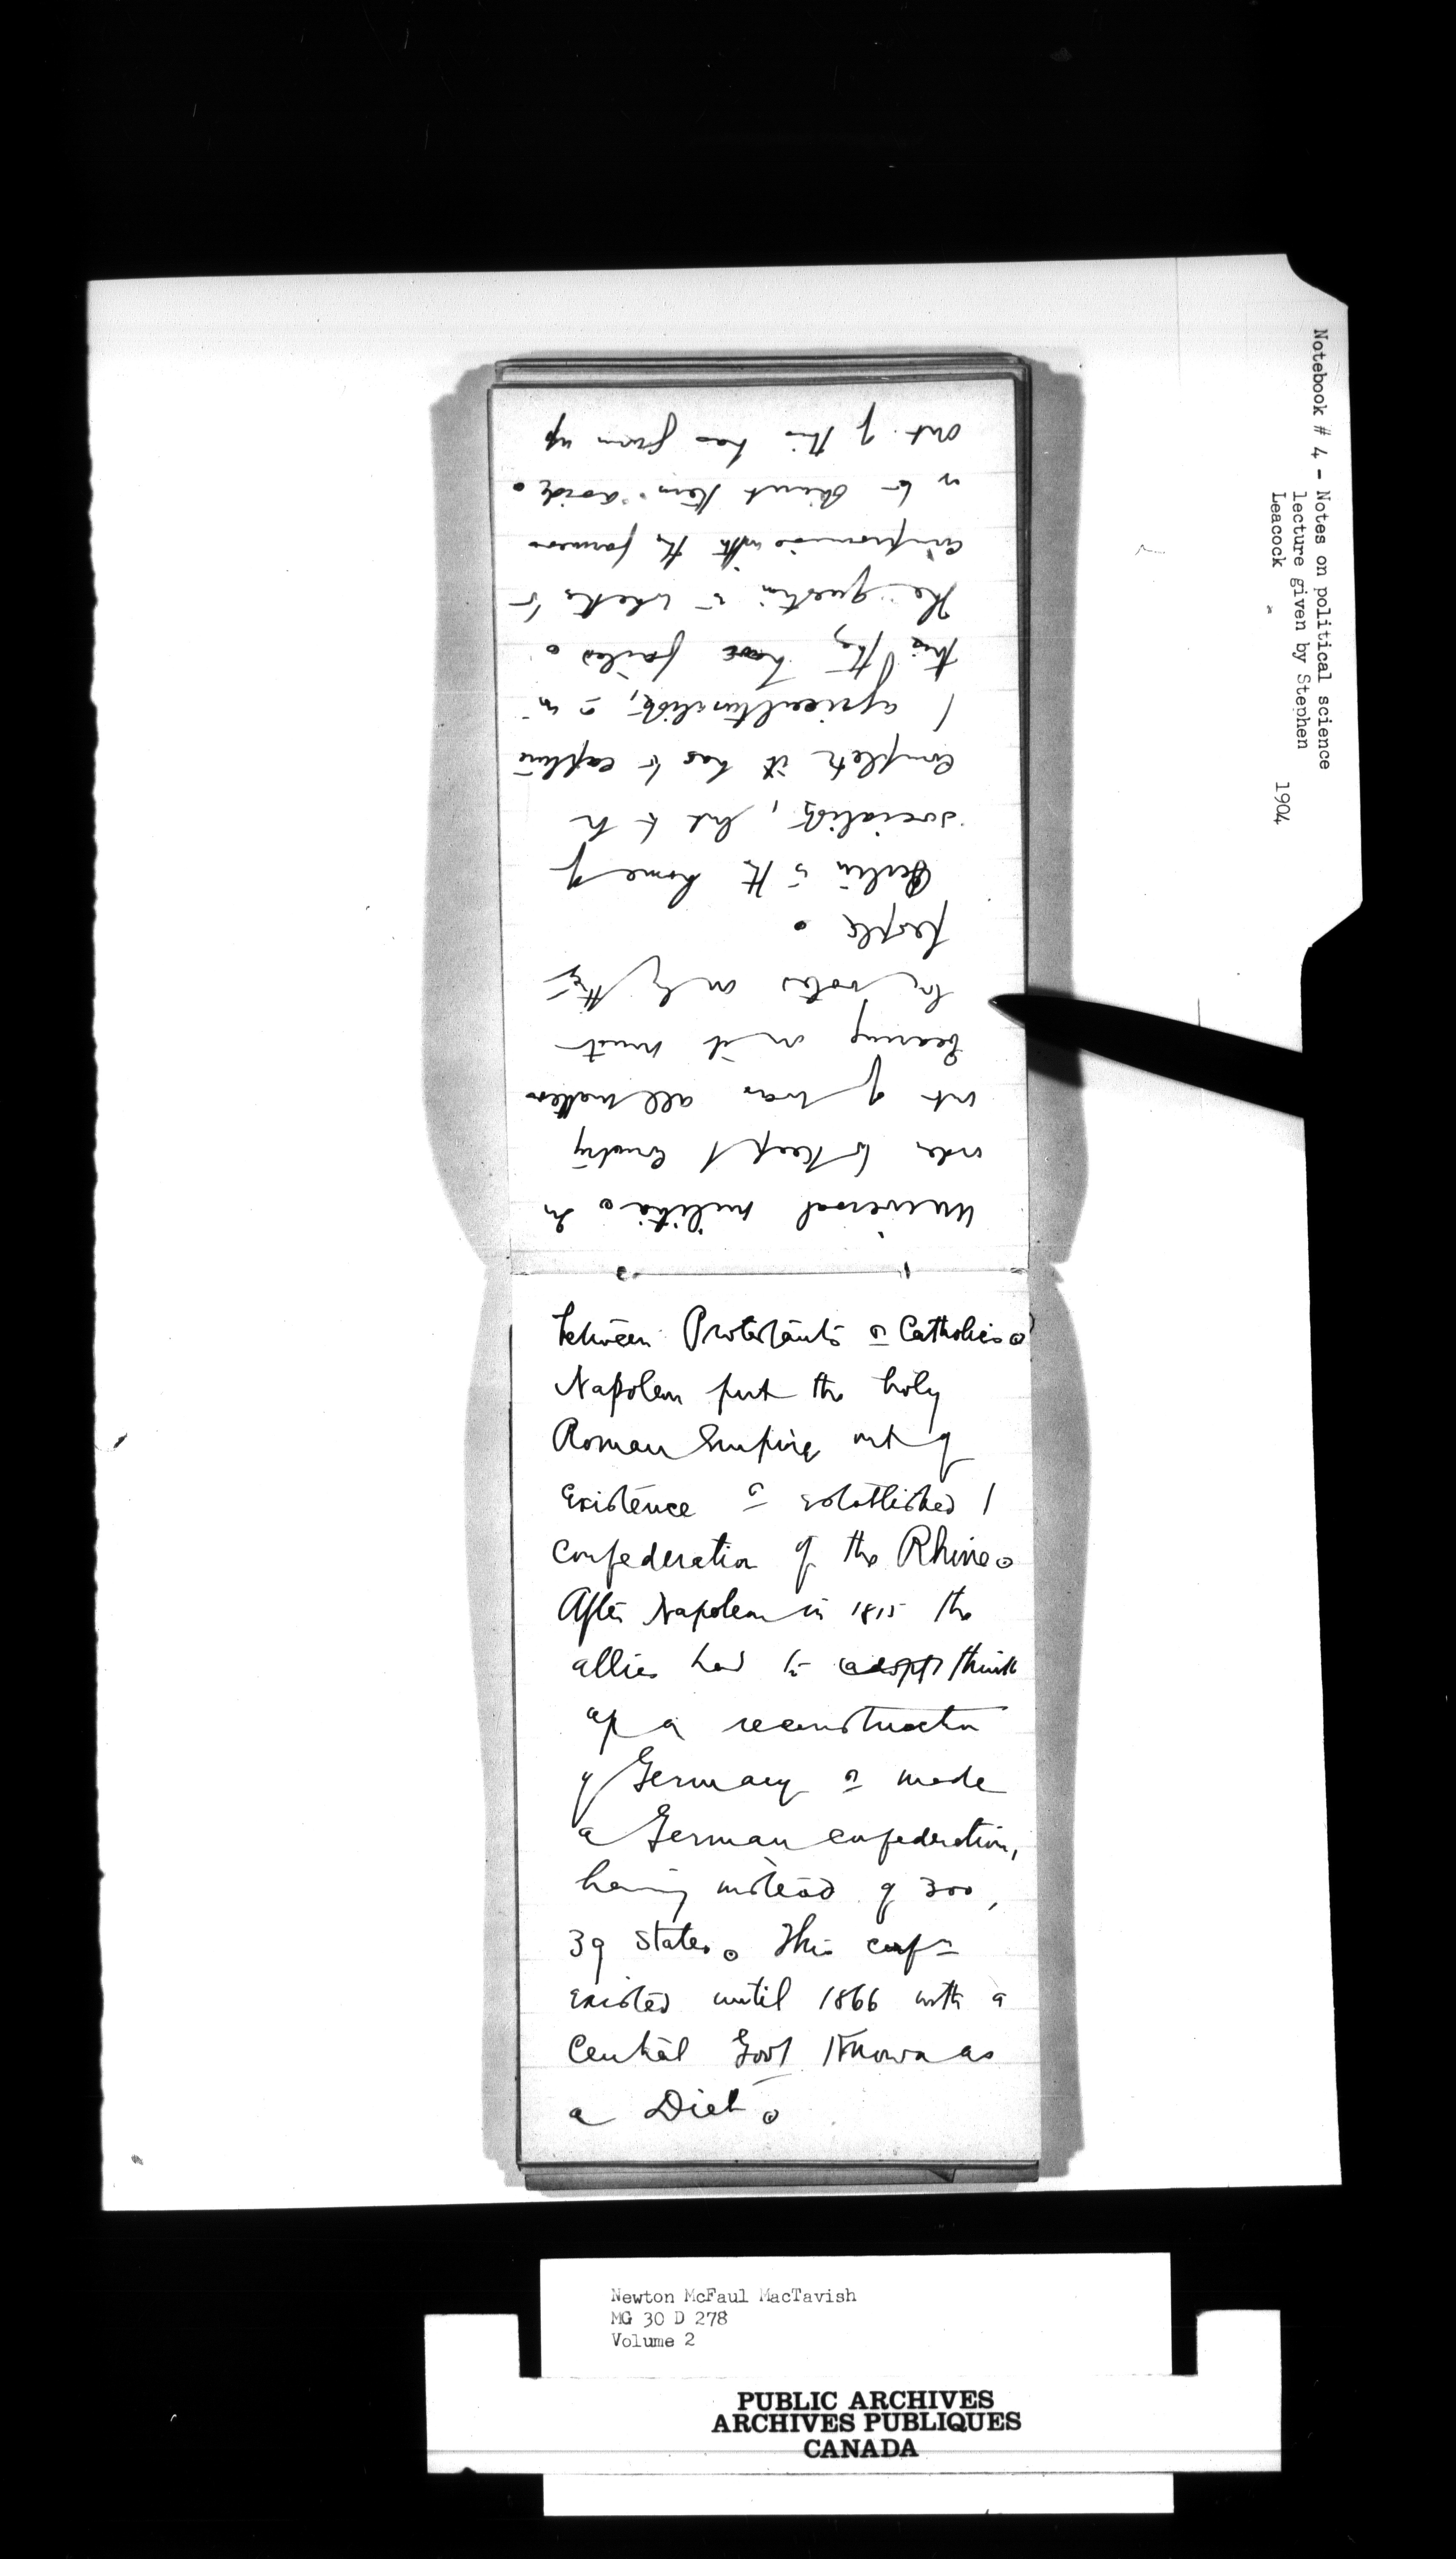 Notebook # 4 - Notes on political science
lecture given by Stephen
Leacock 1904
universal militia. In
order to keep / country
out of war all matters
bearing on it must
be votes on by the
people.
Berlin is the home of
socialists, but to be
complete it has to capture
/ agriculturalists, & in
this they have failed.
The question is whether to
compromise with the farmers
or to
out of this has grown up
between Protestants & Catholics.
Napoleon put the holy
Roman Empire out of
existence & established /
confederation of the Rhine.
After Napoleon in 1815 the
allies had to adopt think
up a reconstruction
of Germany & made
a German confederation,
having instead of 300,
39 states. This conf-
existed until 1866 with a
Central Govt Known as
a Diet.
Newton McFaul MacTavish
MG 30 D 278
Volume 2
PUBLIC ARCHIVES
ARCHIVES PUBLIQUES
CANADA